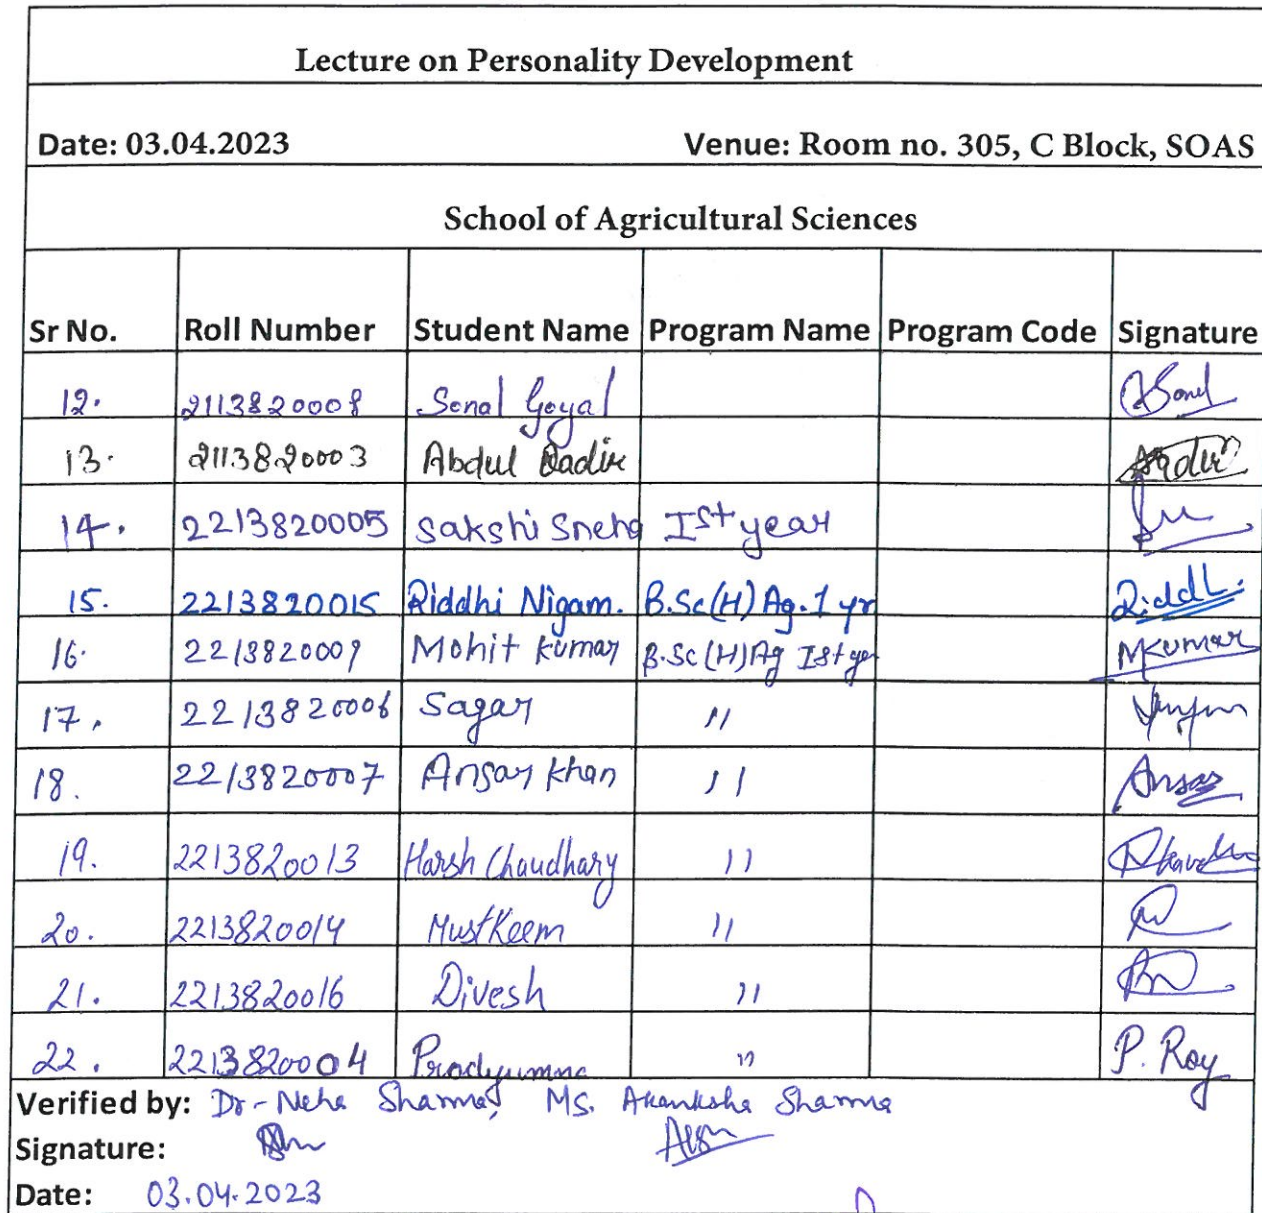 Lecture on Personality Development
Date: 03.04.2023 Venue: Room no. 305, C Block, SOAS
School of Agricultural Sciences
Sr No. Roll Number Student Name Program Name Program Code Signature
12. 2113820008 Sonal Goyal Sonal
13. 2113820003 Abdul Qadir Aqdir
14. 2213820005 Sakshi Sneha Ist year
15. 2213820015 Riddhi Nigam. B.Sc(H) Ag. 1 yr Riddhi
16. 2213820009 Mohit Kumar B.Sc(H)Ag Ist year MKumar
17. 2213820006 Sagar "
18. 2213820007 Ansar Khan " Ansar
19. 2213820013 Harsh Chaudhary "
20. 2213820014 Mustkeem "
21. 2213820016 Divesh "
22. 2213820004 Pradyumna " P. Roy
Verified by: Dr. Neha Sharma, Ms. Akanksha Sharma
Signature:
Date: 03.04.2023